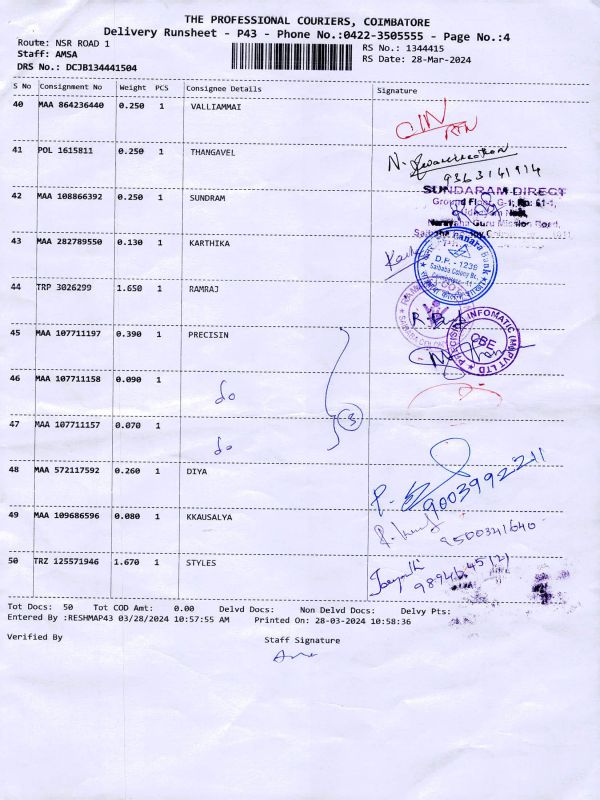 THE PROFESSIONAL COURIERS, COIMBATORE
Delivery Runsheet - P43 - Phone No.:0422-3505555 - Page No.:4
Route: NSR ROAD 1
RS No.: 1344415
Staff: AMSA
RS Date: 28-Mar-2024
DRS No.: DCJB134441504
S No Consignment No Weight PCS Consignee Details Signature
40 MAA 864236440 0.250 1 VALLIAMMAI
41 POL 1615811 0.250 1 THANGAVEL
9363141914
42 MAA 108866392 0.250 1 SUNDRAM
SUNDARAM DIRECT
Ground Floor, G-1,
Guru Mission Road,
43 MAA 282789550 0.130 1 KARTHIKA
Canara Bank
D.P. - 1236
Saibaba Colony Br.
44 TRP 3026299 1.650 1 RAMRAJ
45 MAA 107711197 0.390 1 PRECISIN
PRECISION INFOMATIC (M) PVT LTD
CBE
46 MAA 107711158 0.090 1
do
3
47 MAA 107711157 0.070 1
do
48 MAA 572117592 0.260 1 DIYA
9003992211
49 MAA 109686596 0.080 1 KKAUSALYA
9500341640
50 TRZ 125571946 1.670 1 STYLES
Tot Docs: 50 Tot COD Amt: 0.00 Delvd Docs: Non Delvd Docs: Delvy Pts:
Entered By :RESHMAP43 03/28/2024 10:57:55 AM Printed On: 28-03-2024 10:58:36
Verified By Staff Signature